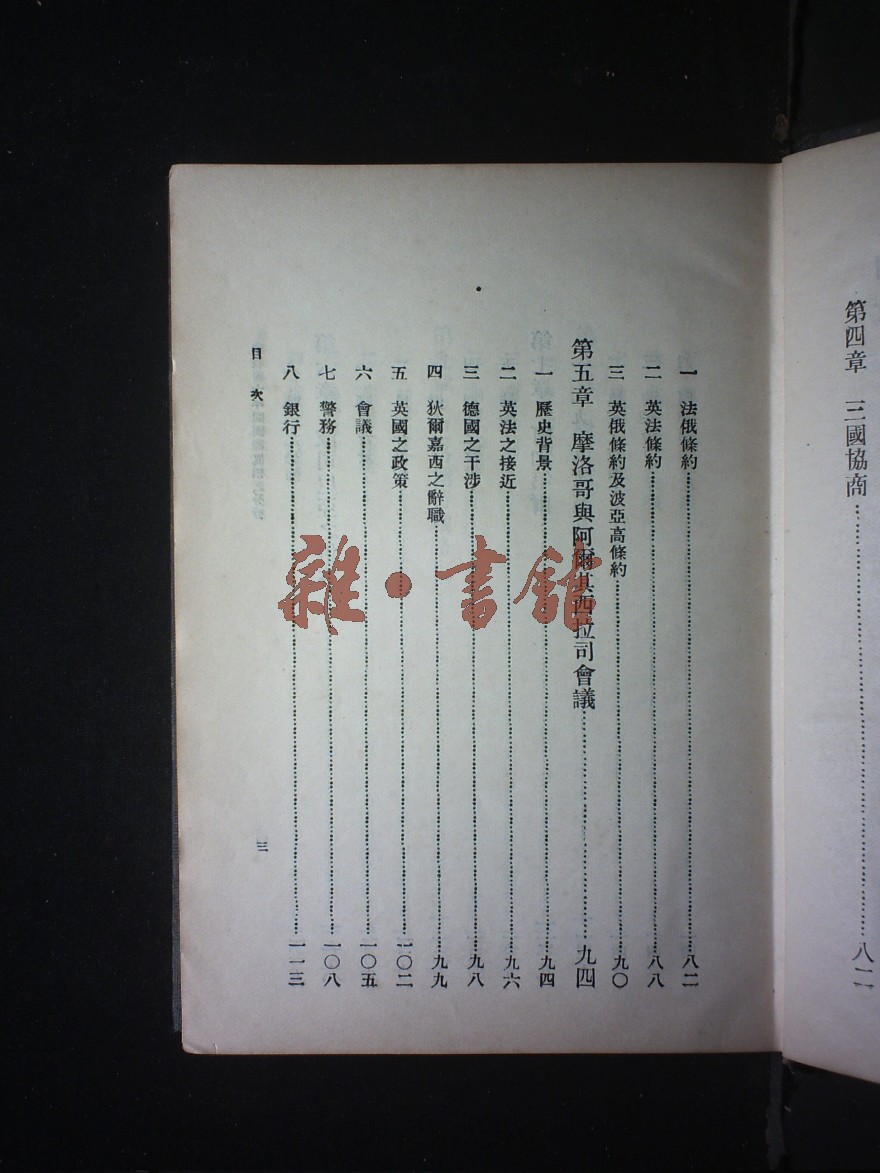 第四章 三國協商……八二
一 法俄條約……八二
二 英法條約……八八
三 英俄條約及波亞高條約……九〇
第五章 摩洛哥與阿爾其西拉司會議……九四
一 歷史背景……九四
二 英法之接近……九六
三 德國之干涉……九八
四 狄爾嘉西之辭職……九九
五 英國之政策……一〇二
六 會議……一〇五
七 警務……一〇八
八 銀行……一一三
目次
三
雜·書館